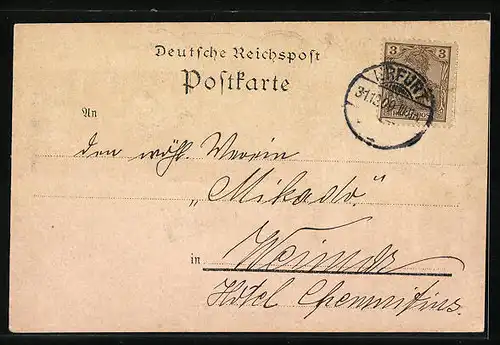 Deutsche Reichspost
Postkarte
3 3
ERFURT
31.12.00
An
den wohl. Verein
„Mikado“.
in Weimar
Hôtel Chemnitius.